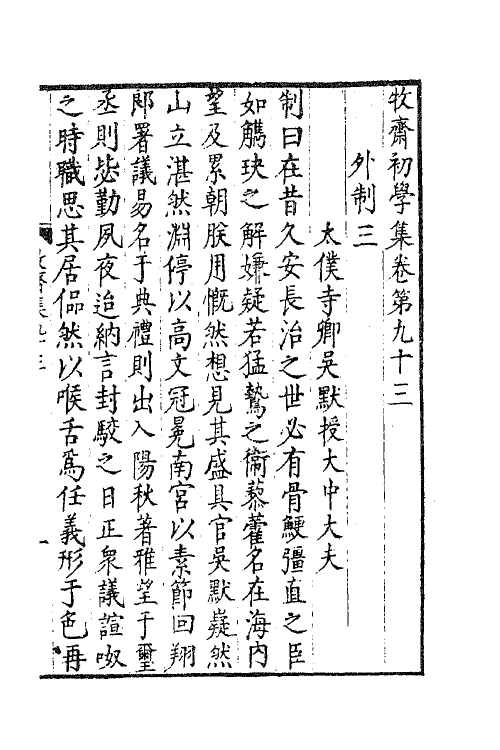 牧齋初學集卷第九十三
外制三
太僕寺卿吳默授大中大夫
制曰在昔久安長治之世必有骨鯁彊直之臣
如觿玦之解嫌疑若猛鷙之衞藜藿名在海內
望及累朝朕用慨然想見其盛具官吳默嶷然
山立湛然淵停以高文冠冕南宮以素節回翔
郎署議易名于典禮則出入陽秋著雅望于璽
丞則毖勤夙夜迨納言封駮之日正衆議諠呶
之時職思其居侃然以喉舌爲任義形于色再